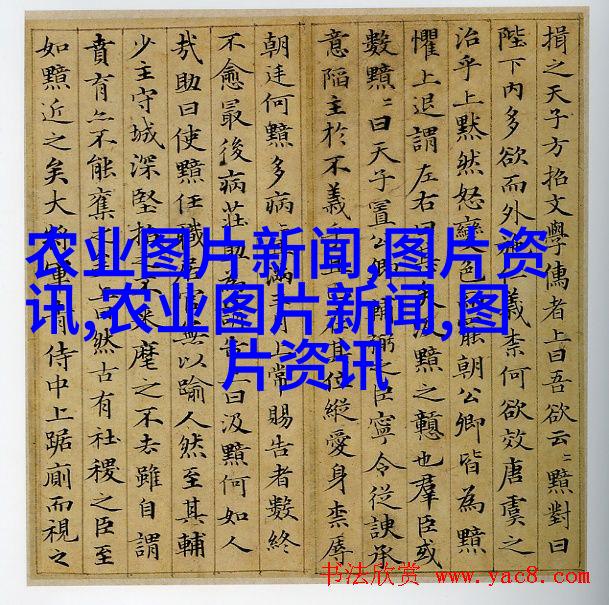 揖之天子方招文學儒者上曰吾欲云〻黯對曰
陛下內多欲而外施義柰何欲效唐虞之
治乎上默然怒變色罷朝公卿皆為黯
懼上退謂左右曰矣汲黯之戇也羣臣或
數黯〻曰天子置公卿輔弼之臣寧令從諛承
意陷主於不義在其位縱愛身柰辱
朝廷何黯多病滿三月上常賜告者數終
不愈最後病莊助為請告曰汲黯何如人
哉助曰使黯任職居官無以踰人然至其輔
少主守城深堅招來麾之不去雖自謂
賁育亦不能奪之上曰然古有社稷之臣至
如黯近之矣大將軍青侍中上踞廁而視之
农业图片新闻,图片资
讯,农业图片新闻,图
片资讯
书法欣赏 www.yac8.com